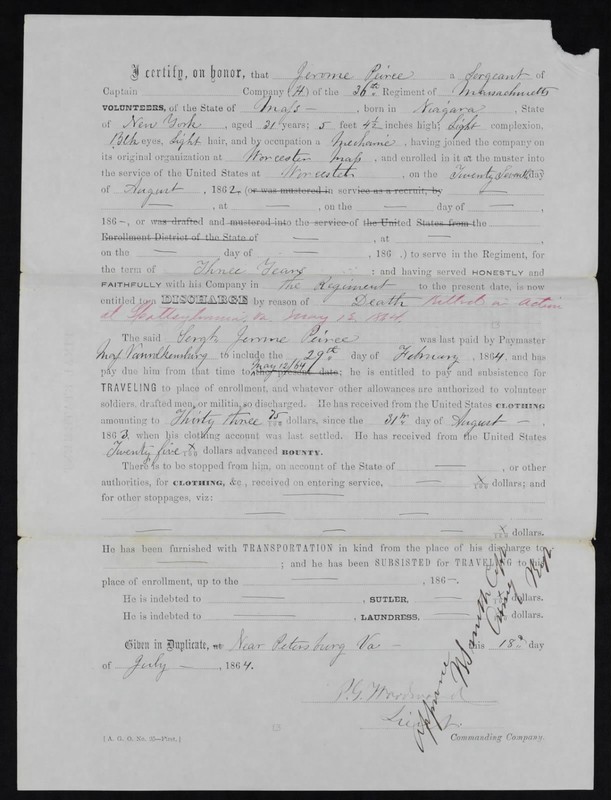 I certify, on honor, that Jerome Peirce a Sergeant of
Captain — Company (H) of the 36th Regiment of Massachusetts
VOLUNTEERS, of the State of Mass —, born in Niagara, State
of New York, aged 31 years; 5 feet 4½ inches high; Light complexion,
Blk eyes, Light hair, and by occupation a Mechanic, having joined the company on
its original organization at Worcester Mass, and enrolled in it at the muster into
the service of the United States at Worcester, on the Twenty Seventh day
of August, 1862, (or was mustered in service as a recruit, by —
—, at —, on the — day of —,
186 –, or was drafted and mustered into the service of the United States from the
Enrollment District of the State of —, at —,
on the — day of —, 186 .) to serve in the Regiment, for
the term of Three Years; and having served HONESTLY and
FAITHFULLY with his Company in the Regiment to the present date, is now
entitled to a DISCHARGE by reason of Death Killed in Action
at Spottsylvania, Va. May 12, 1864.
The said Sergt Jerome Peirce was last paid by Paymaster
Maj Vanvalkenburg to include the 29th day of February, 1864, and has
May 12/64
pay due him from that time to the present date; he is entitled to pay and subsistence for
TRAVELING to place of enrollment, and whatever other allowances are authorized to volunteer
soldiers, drafted men, or militia, so discharged. He has received from the United States CLOTHING
amounting to Thirty three 75/100 dollars, since the 31st day of August –,
1863, when his clothing account was last settled. He has received from the United States
Twenty five x/100 dollars advanced BOUNTY.
There is to be stopped from him, on account of the State of —, or other
authorities, for CLOTHING, &c., received on entering service, — x/100 dollars; and
for other stoppages, viz: —
— — — —
— — — — x/100 dollars.
He has been furnished with TRANSPORTATION in kind from the place of his discharge to
—; and he has been SUBSISTED for TRAVELING to his
place of enrollment, up to the —, 186–.
He is indebted to —, SUTLER, — dollars.
He is indebted to —, LAUNDRESS, — dollars.
Given in Duplicate, at Near Petersburg Va – this 18th day
of July —, 1864.
P.G. Woodward
Lieut.
[A. G. O. No. 
Commanding Company.
Smith Capt